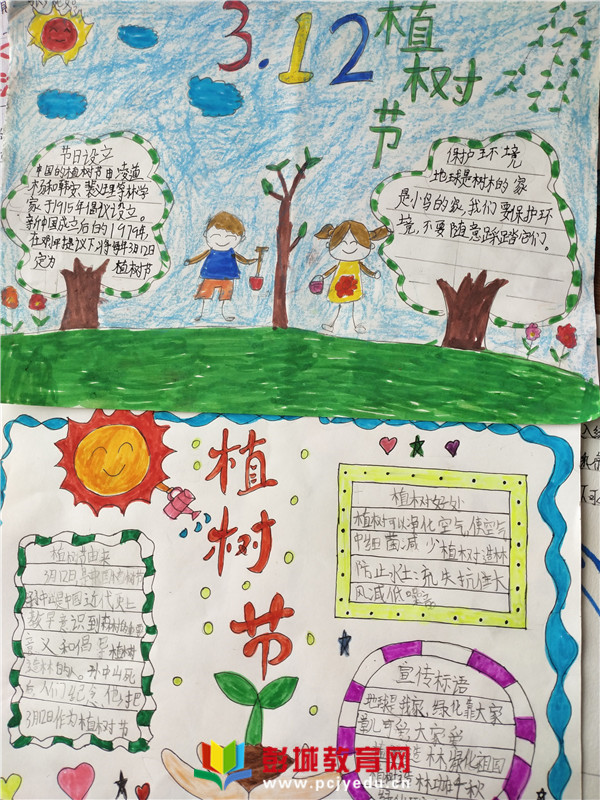 3.12植树节
节日设立
中国的植树节由凌道
杨和韩安、裴义理等林学
家于1915年倡议设立。
新中国成立后的1979年,
在邓小平提议下将每年3月12日
定为 植树节
保护环境
地球是树木的家
是小鸟的家,我们要保护环
境,不要随意踩踏它们。
植树节
植树节由来
3月12日是中国植树节
孙中山是中国近代史上
较早意识到森林的重要
意义和倡导植树
造林的人。孙中山死
后人们纪念他将把
3月12日作为植树节
植树好处
植树可以净化空气,使空气
中细菌减少植树造林
防止水土流失抗住大
风减低噪音
宣传标语
地球是我家,绿化靠大家
植树造林绿化祖国
彭城教育网
www.pcjyedu.cn